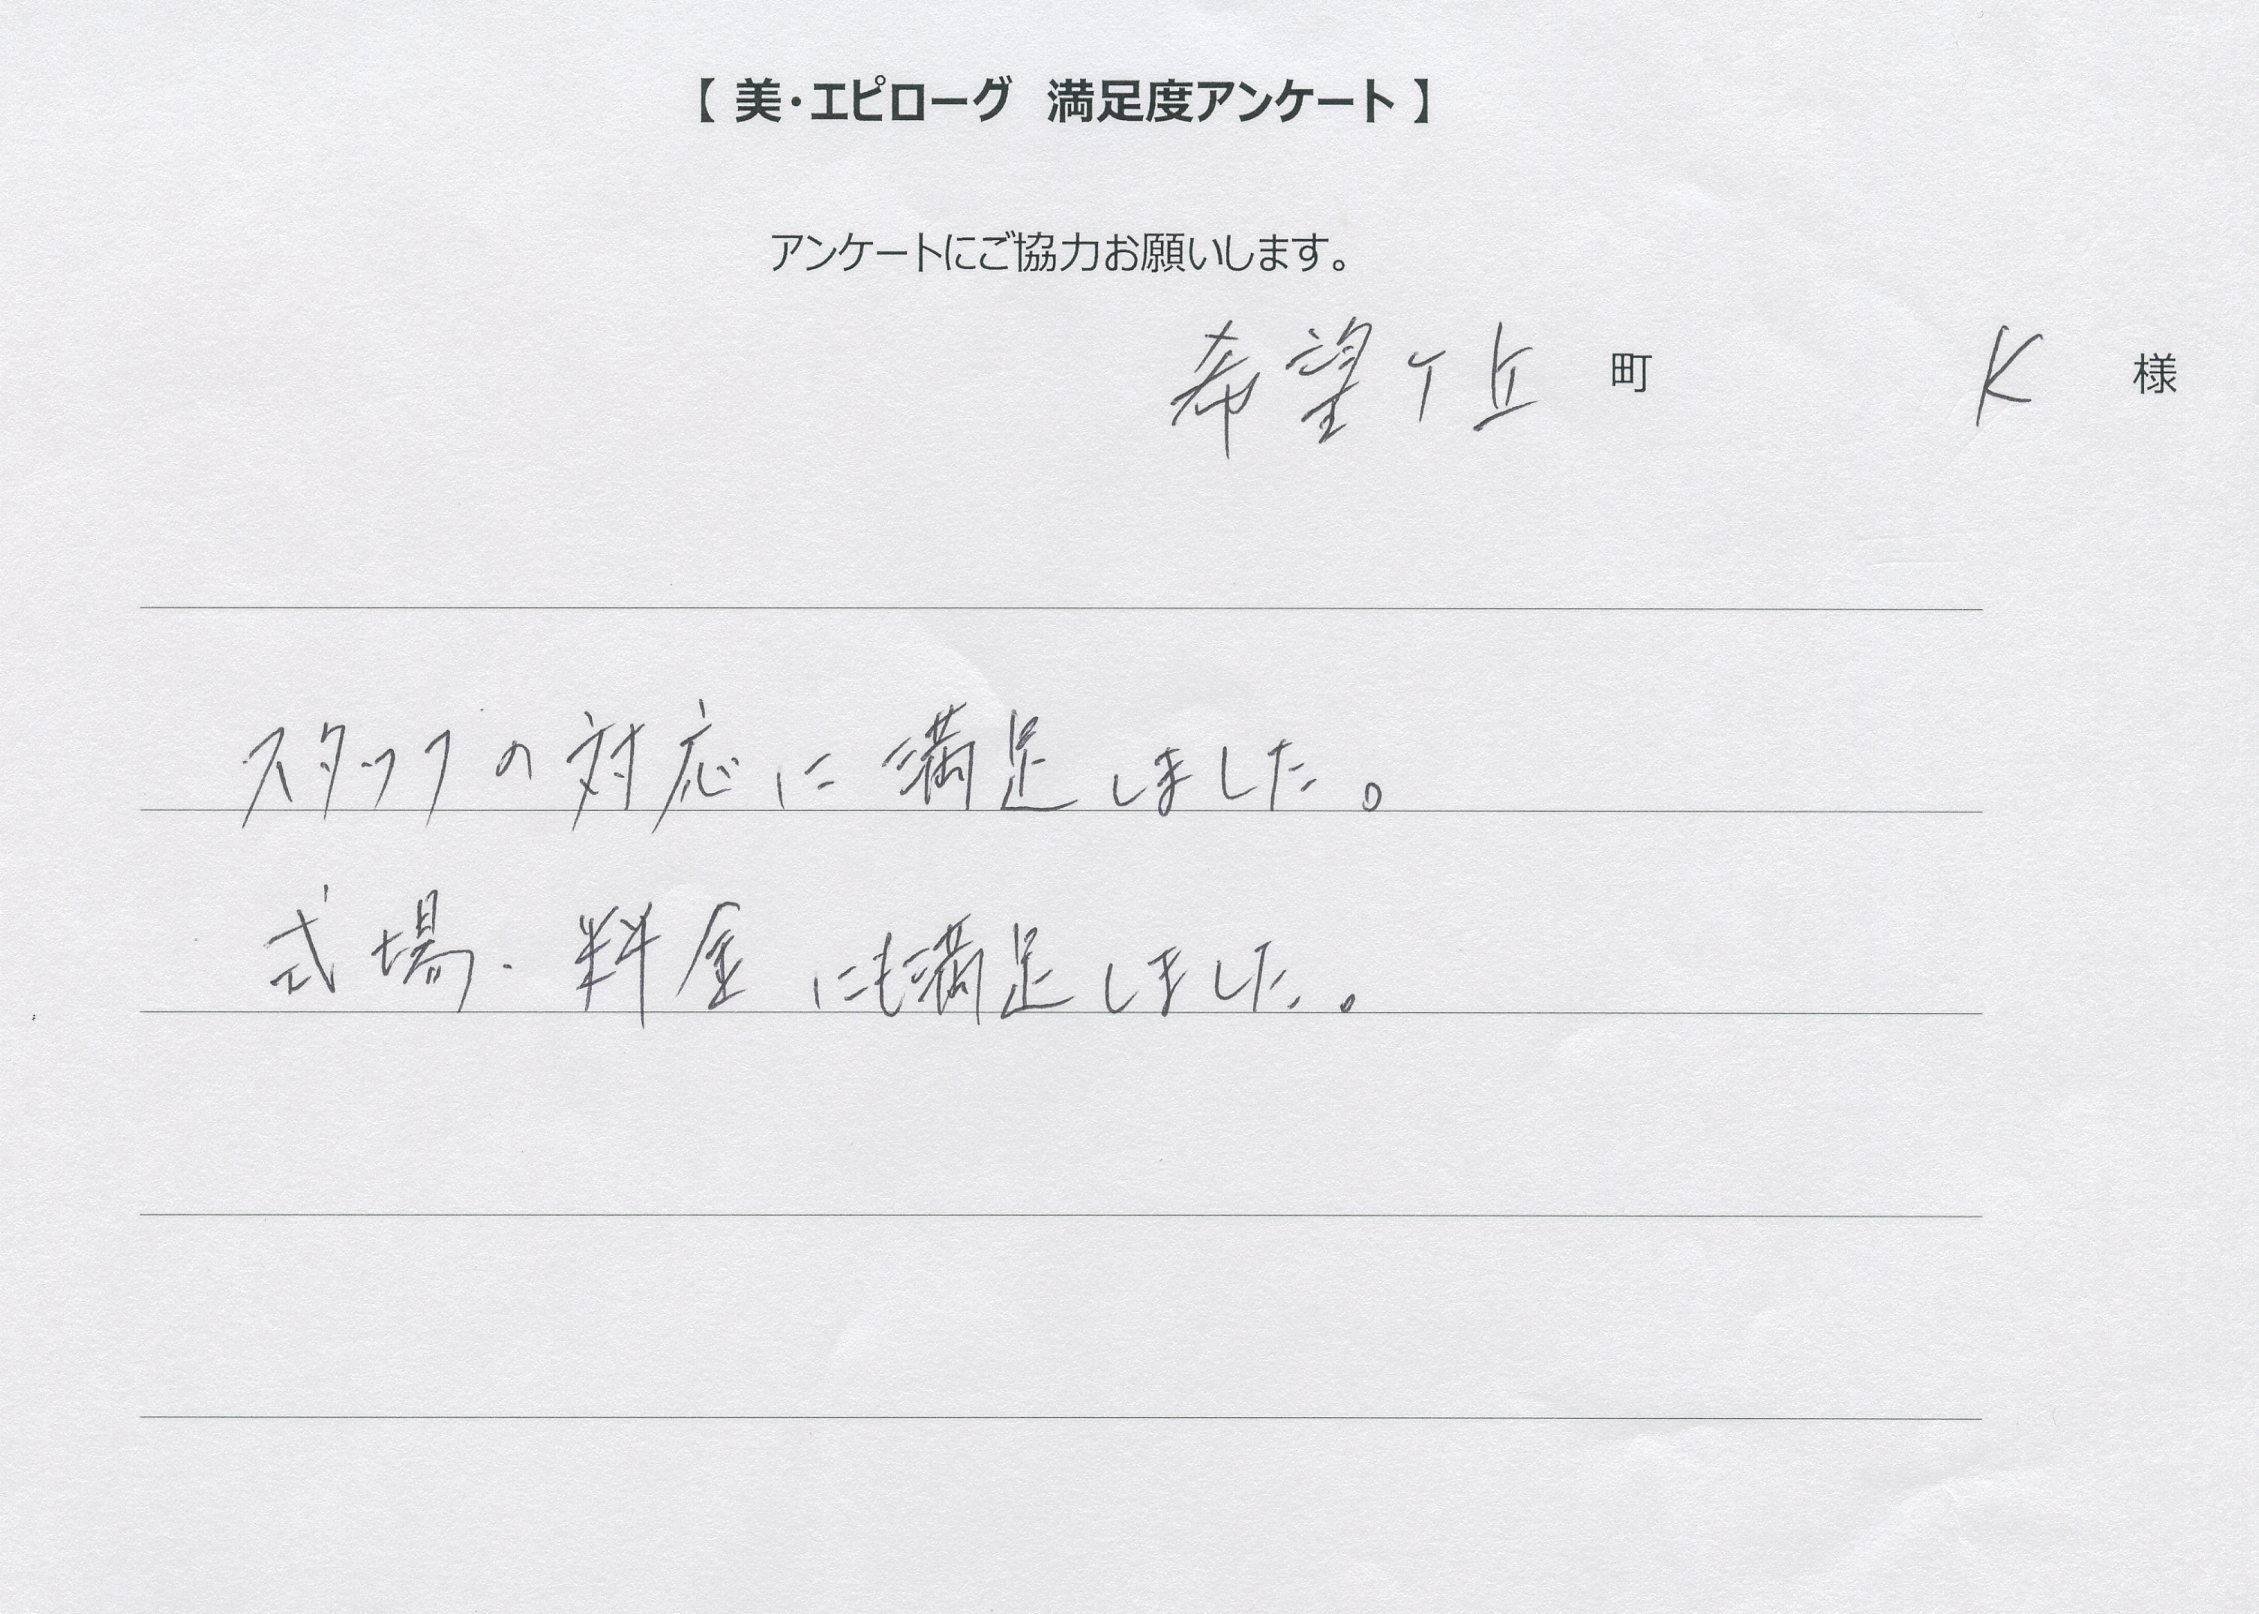 【 美・エピローグ 満足度アンケート 】
アンケートにご協力お願いします。
希望ケ丘 町 K 様
スタッフの対応に満足しました。
式場・料金にも満足しました。